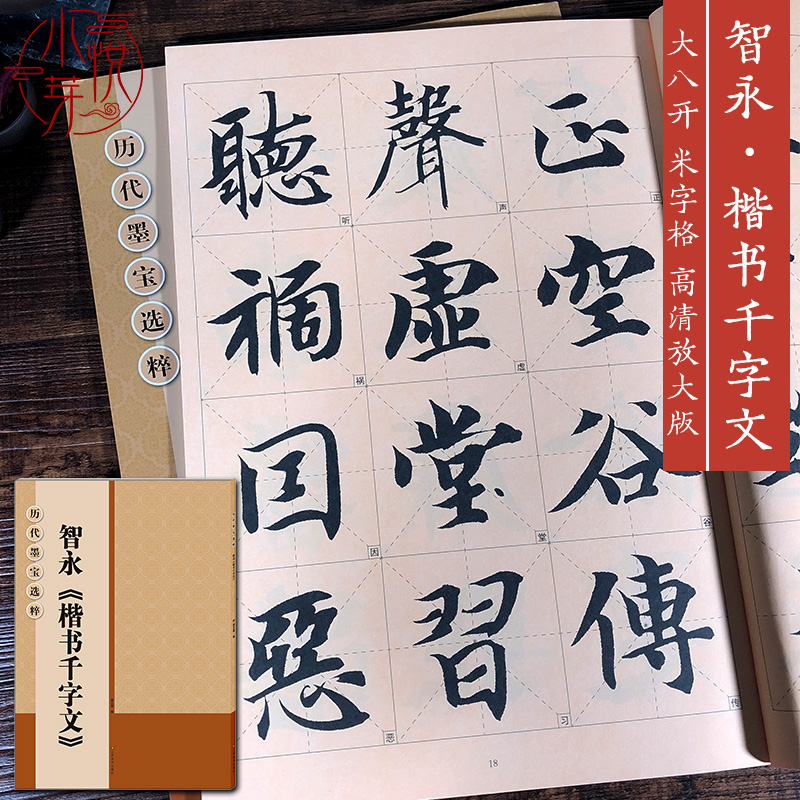 小芽
悦
历代墨宝选粹
智永·楷书千字文
大八开 米字格 高清放大版
正空谷傳
聲虛堂習
聽禍囙惡
正
谷
传
声
虚
堂
习
听
祸
因
恶
18
历代墨宝选粹
智永《楷书千字文》